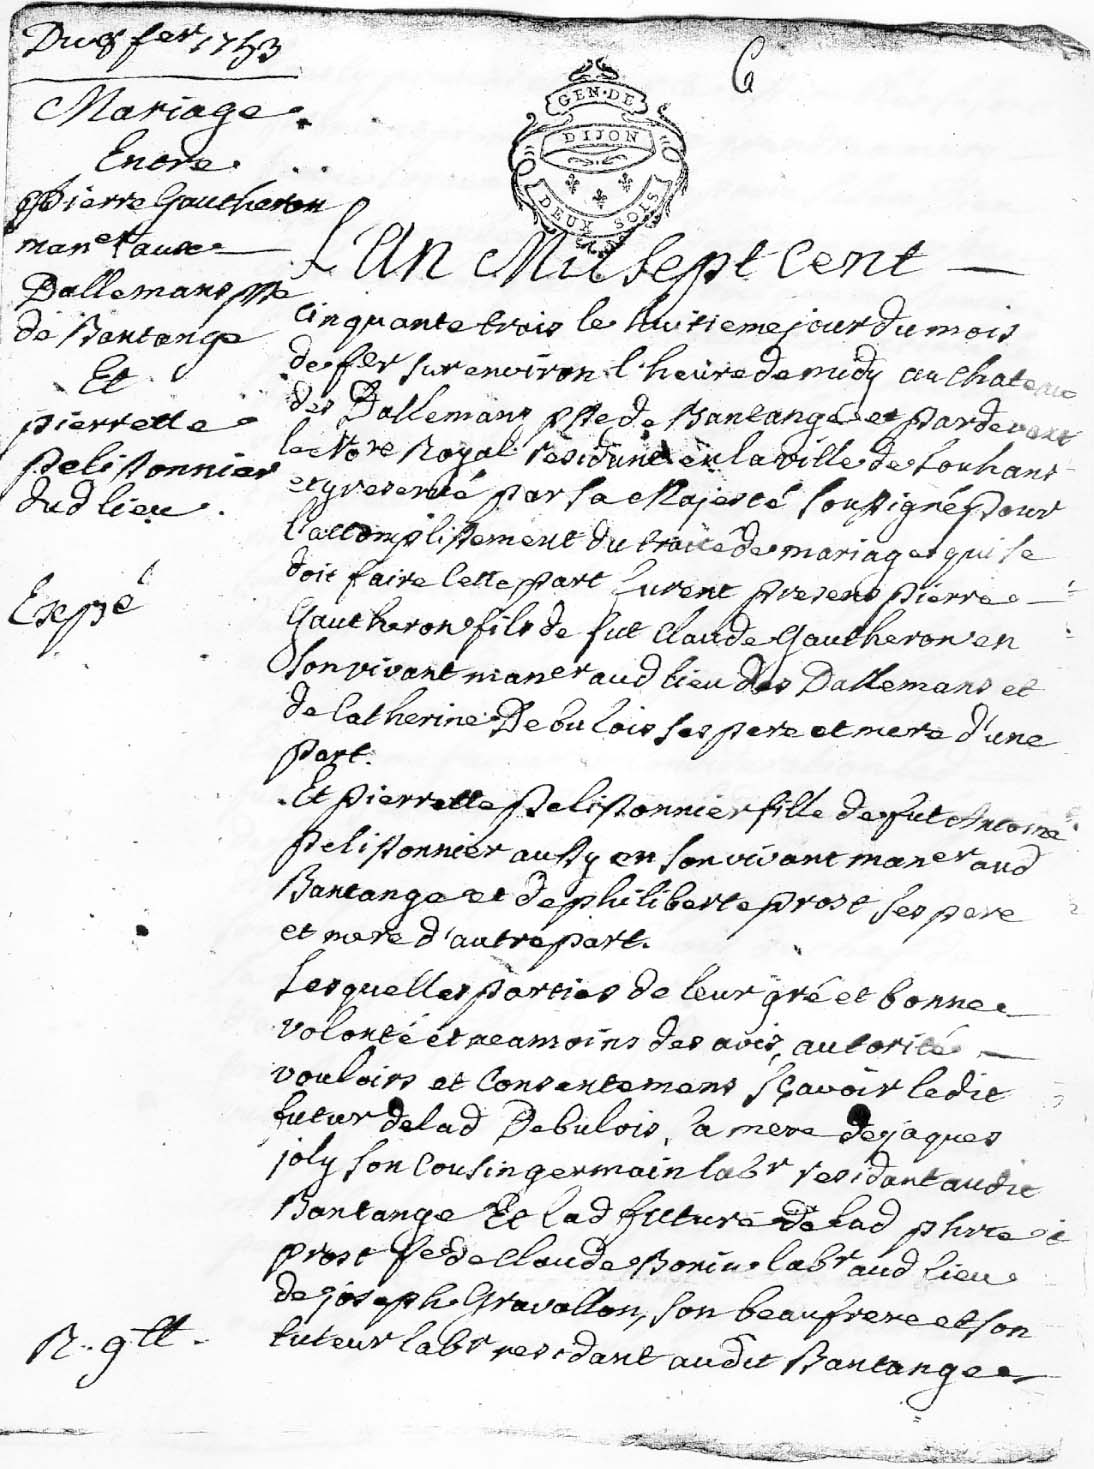 Du 8 fer 1753
Mariage
Entre
pierre Gautheron
maner aux
Dallemans psse
de Bantange
Et
pierrette
pelissonnier
dud lieu
Expé
R. 9tt
6
GEN·DE
DIJON
DEUX SOLS
L'An Mil sept Cent
Cinquante trois le huitieme jour du mois
de fer sur environ l'heure de midy au Chateau
des Dallemans psse de Bantange et pardevant
le Nore Royal residant en la ville de Louhans
et reservé par sa Majesté soussigné pour
l'accomplissement du traité de mariage qui se
doit faire Cette part furent presens pierre
Gautheron fils de fut Claude Gautheron en
son vivant maner aud lieu des Dallemans et
de Catherine Debulois ses pere et mere d'une
part.
Et pierrette pelissonnier fille de fut Antoine
pelissonnier aussy en son vivant maner aud
Bantange et de philiberte prost ses pere
et mere d'autre part.
Lesquelles parties de leur gré et bonne
volonté et neamoins des avis, autorité
vouloirs et Consentemens sçavoir ledit
futur de lad Debulois, sa mere de jaques
joly son Cousin germain labr residant audit
Bantange Et lad future de lad phrte
prost fe de Claude Borin labr aud lieu
de joseph Gravallon, son beaufrere et son
tuteur labr residant audit Bantange